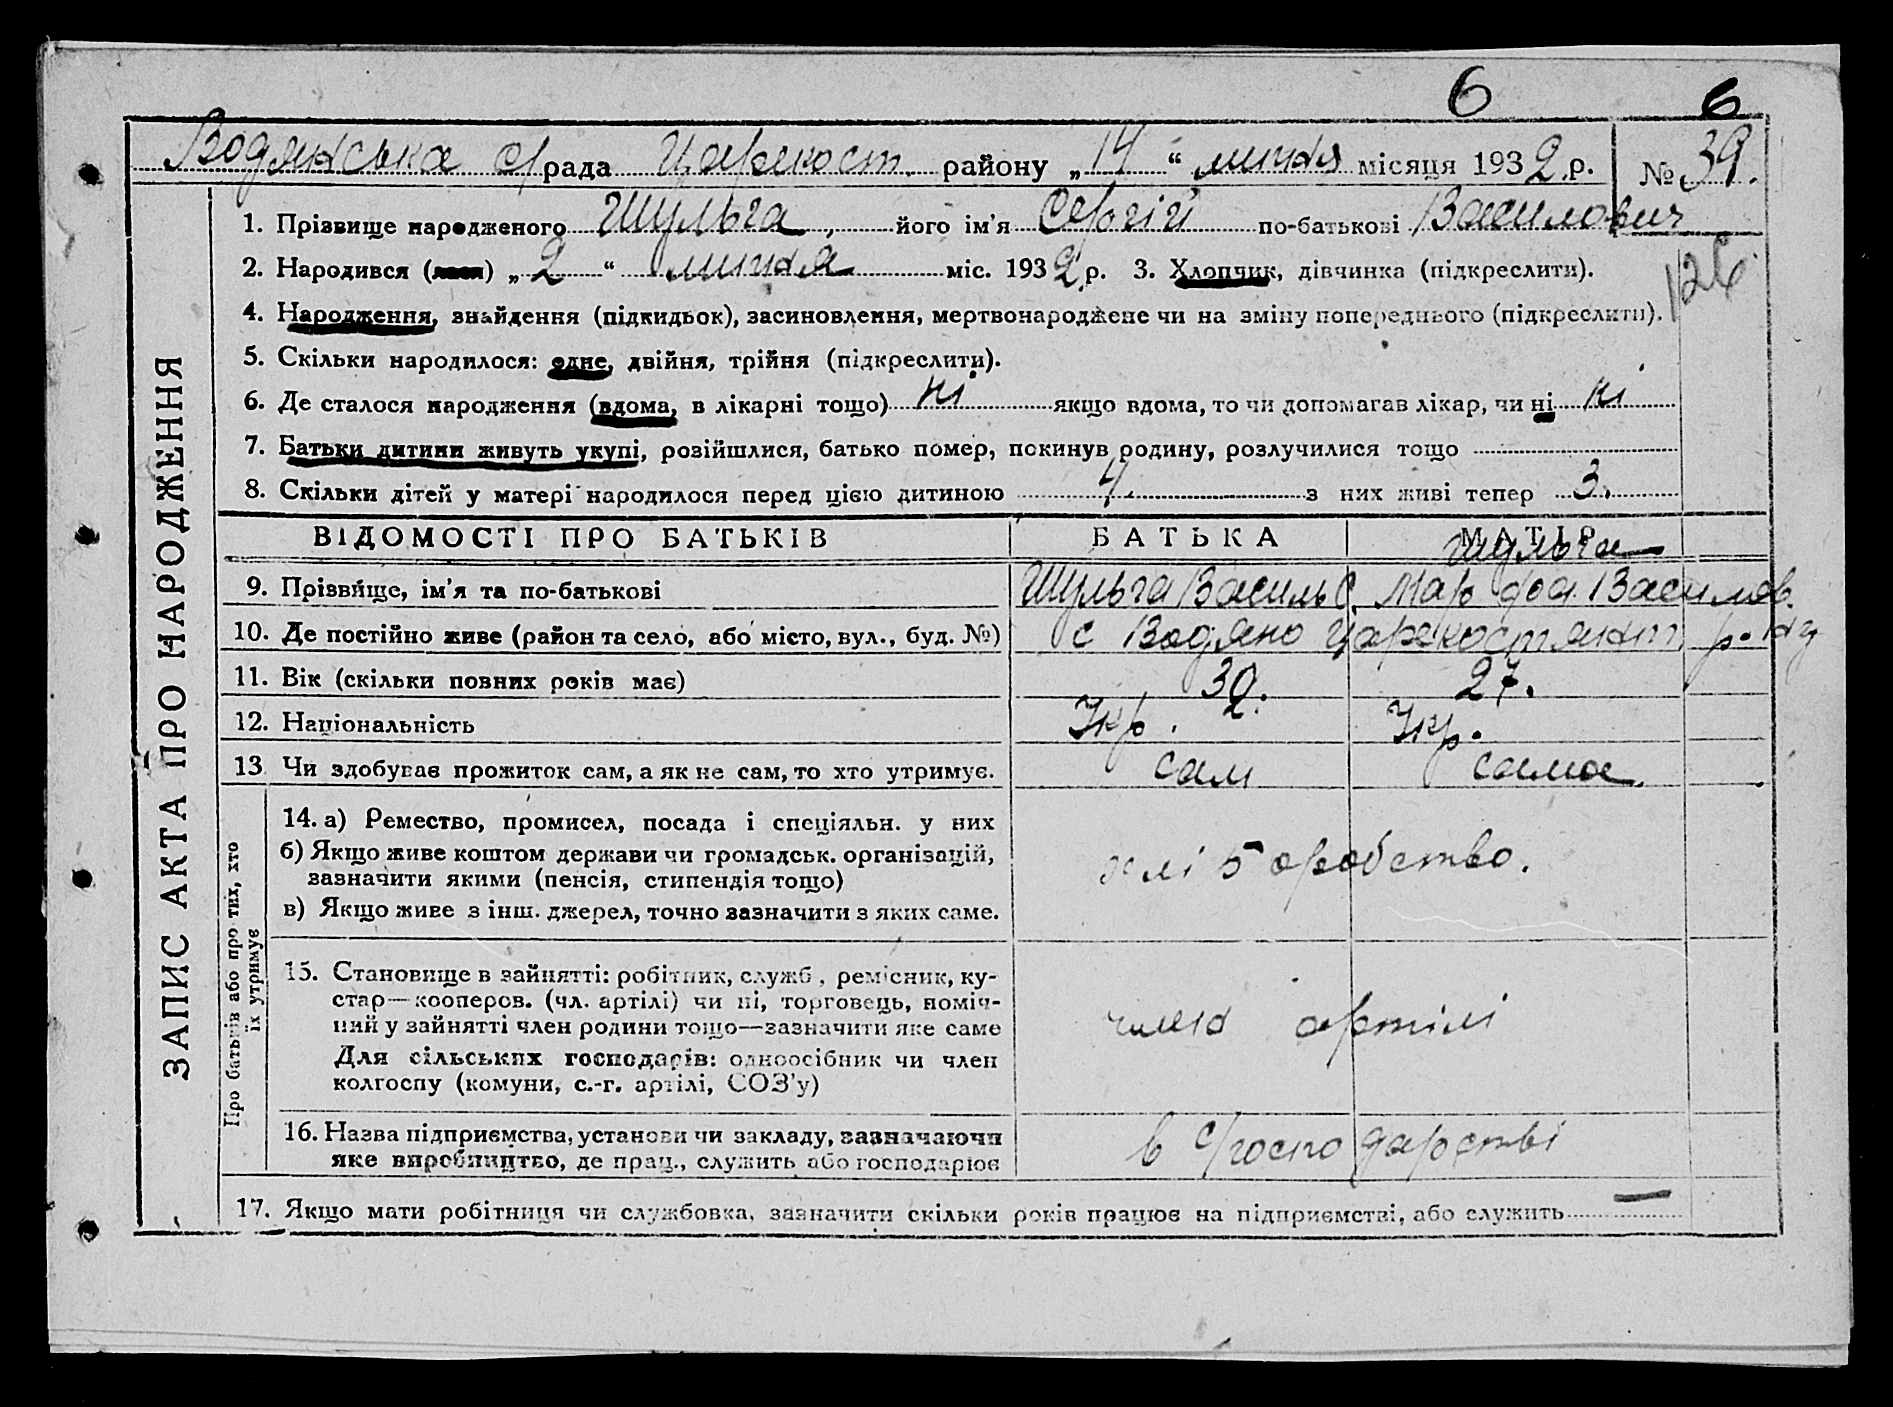 6 6
Водянська с/рада Царекост. району „14“ липня місяця 1932 р. № 39.
1. Прізвище народженого Шульга, його ім’я Сергій по-батькові Василович
2. Народився (лася) „2“ липня міс. 1932 р. 3. Хлопчик, дівчинка (підкреслити).
126
4. Народження, знайдення (підкидьок), засиновлення, мертвонароджене чи на зміну попереднього (підкреслити).
5. Скільки народилося: одне, двійня, трійня (підкреслити).
6. Де сталося народження (вдома, в лікарні тощо) ні якщо вдома, то чи допомагав лікар, чи ні ні
7. Батьки дитини живуть укупі, розійшлися, батько помер, покинув родину, розлучилися тощо
8. Скільки дітей у матері народилося перед цією дитиною 4. з них живі тепер 3.
ВІДОМОСТІ ПРО БАТЬКІВ БАТЬКА МАТІР
Шульга
9. Прізвище, ім’я та по-батькові Шульга Василь С. Марфа Василов.
10. Де постійно живе (район та село, або місто, вул., буд. №) с Водяно Царекостянт. р-ну
11. Вік (скільки повних років має) 32. 27.
12. Національність Укр. Укр.
13 Чи здобував прожиток сам, а як не сам, то хто утримує. сам сама.
14. а) Ремество, промисел, посада і спеціяльн. у них
б) Якщо живе коштом держави чи громадськ. організацій,
зазначити якими (пенсія, стипендія тощо) хліборобство.
в) Якщо живе з інш. джерел, точно зазначити з яких саме.
15. Становище в зайнятті: робітник, служб., ремісник, ку-
стар—кооперов. (чл. артілі) чи ні, торговець, поміч-
ний у зайнятті член родини тощо—зазначити яке саме член артілі
Для сільських господарів: одноосібник чи член
колгоспу (комуни, с.-г. артілі, СОЗ’у)
16. Назва підприємства, установи чи закладу, зазначаючи
яке виробництво, де прац., служить або господарює в с/господарстві
17. Якщо мати робітниця чи службовка, зазначити скільки років працює на підприємстві, або служить —
ЗАПИС АКТА ПРО НАРОДЖЕННЯ
Про батьків або про тих, хто
їх утримує